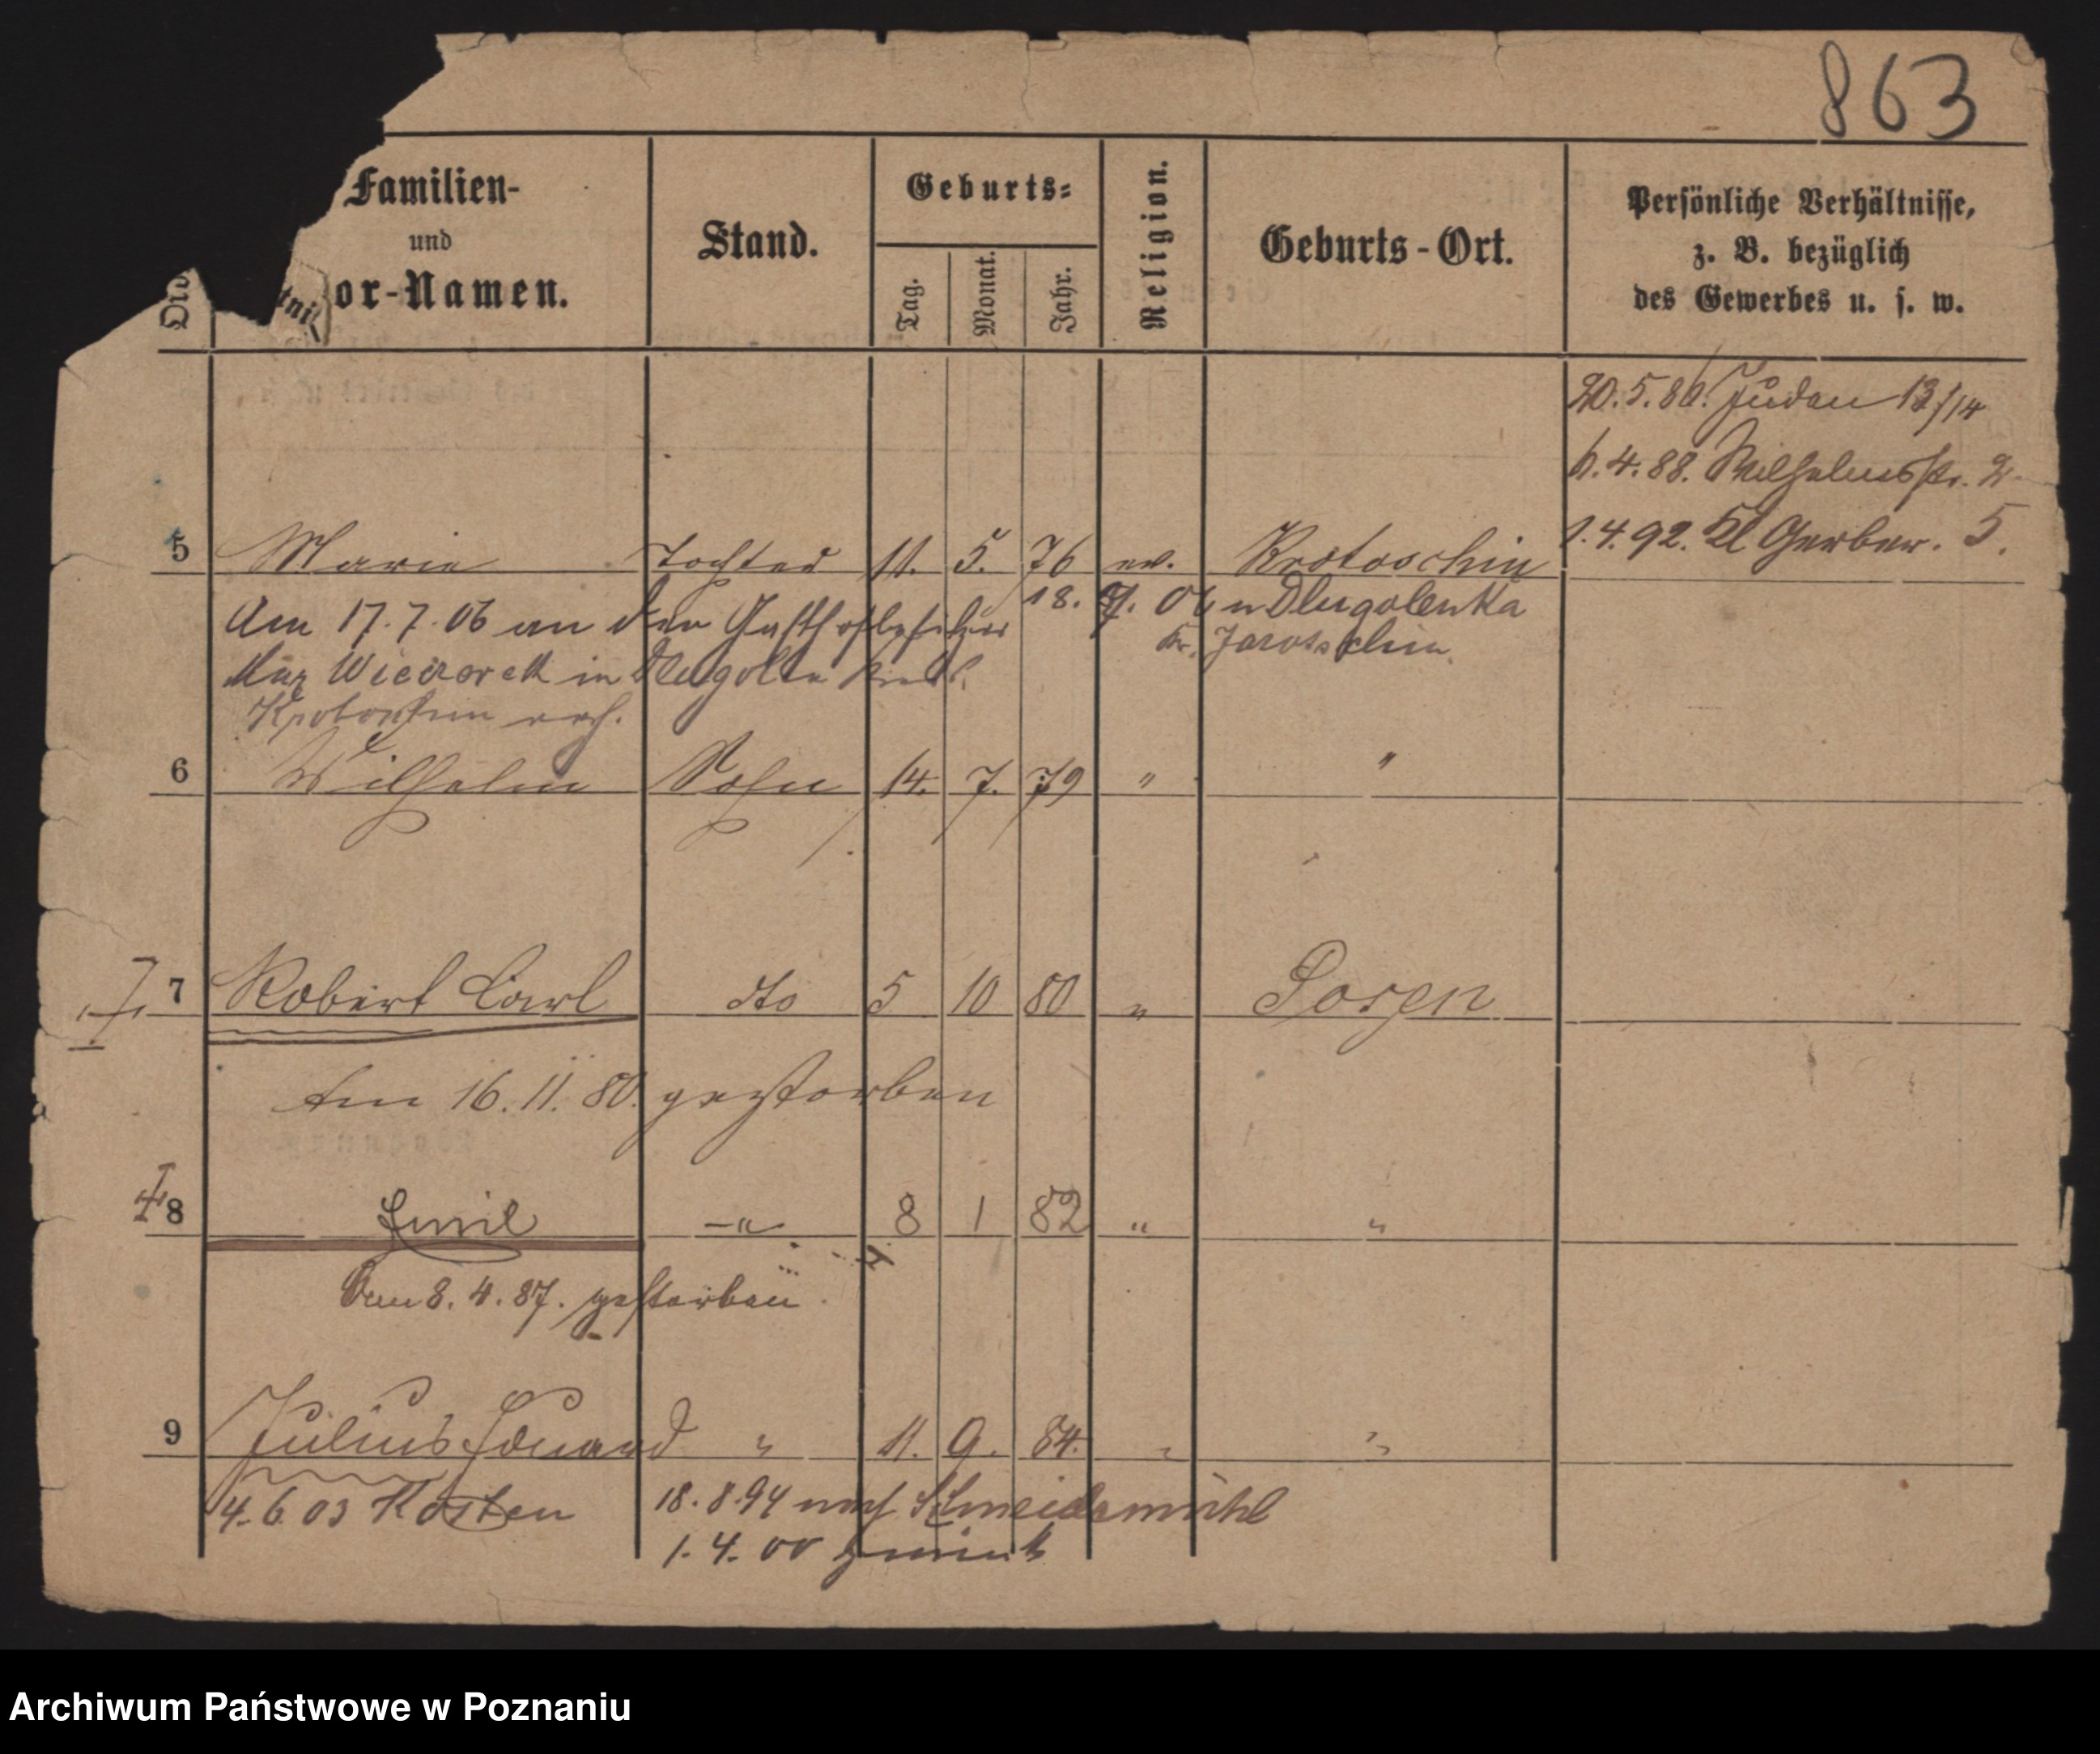 863
Familien-
und
or-Namen.
Stand.
Geburts-
Tag.
Monat.
Jahr.
Religion.
Geburts-Ort.
Persönliche Verhältnisse,
z. B. bezüglich
des Gewerbes u. s. w.
20.5.86. Juden 13/14
6.4.88. Wilhelmsstr. 2.
1.4.92. Kl Gerber. 5.
5 Marie Tochter 11. 5. 76 ev. Krotoschin
Am 17.7.06 an den Gasthofbesitzer
18. 7. 06 n Dlugolenka
Kr. Jarotschin
Max Wieczorek in
Krotoschin verh.
6 Wilhelm Sohn 14. 7. 79 " "
7 Robert Carl dto 5 10 80 " Posen
Am 16.11.80. gestorben
8 Emil –"– 8 1 82 " "
Am 8.4.87. gestorben
9 Julius Eduard " 11. 9. 84. " "
4.6.03 Kosten
18.8.94 nach Schneidemühl
1.4.00 zurück
Archiwum Państwowe w Poznaniu